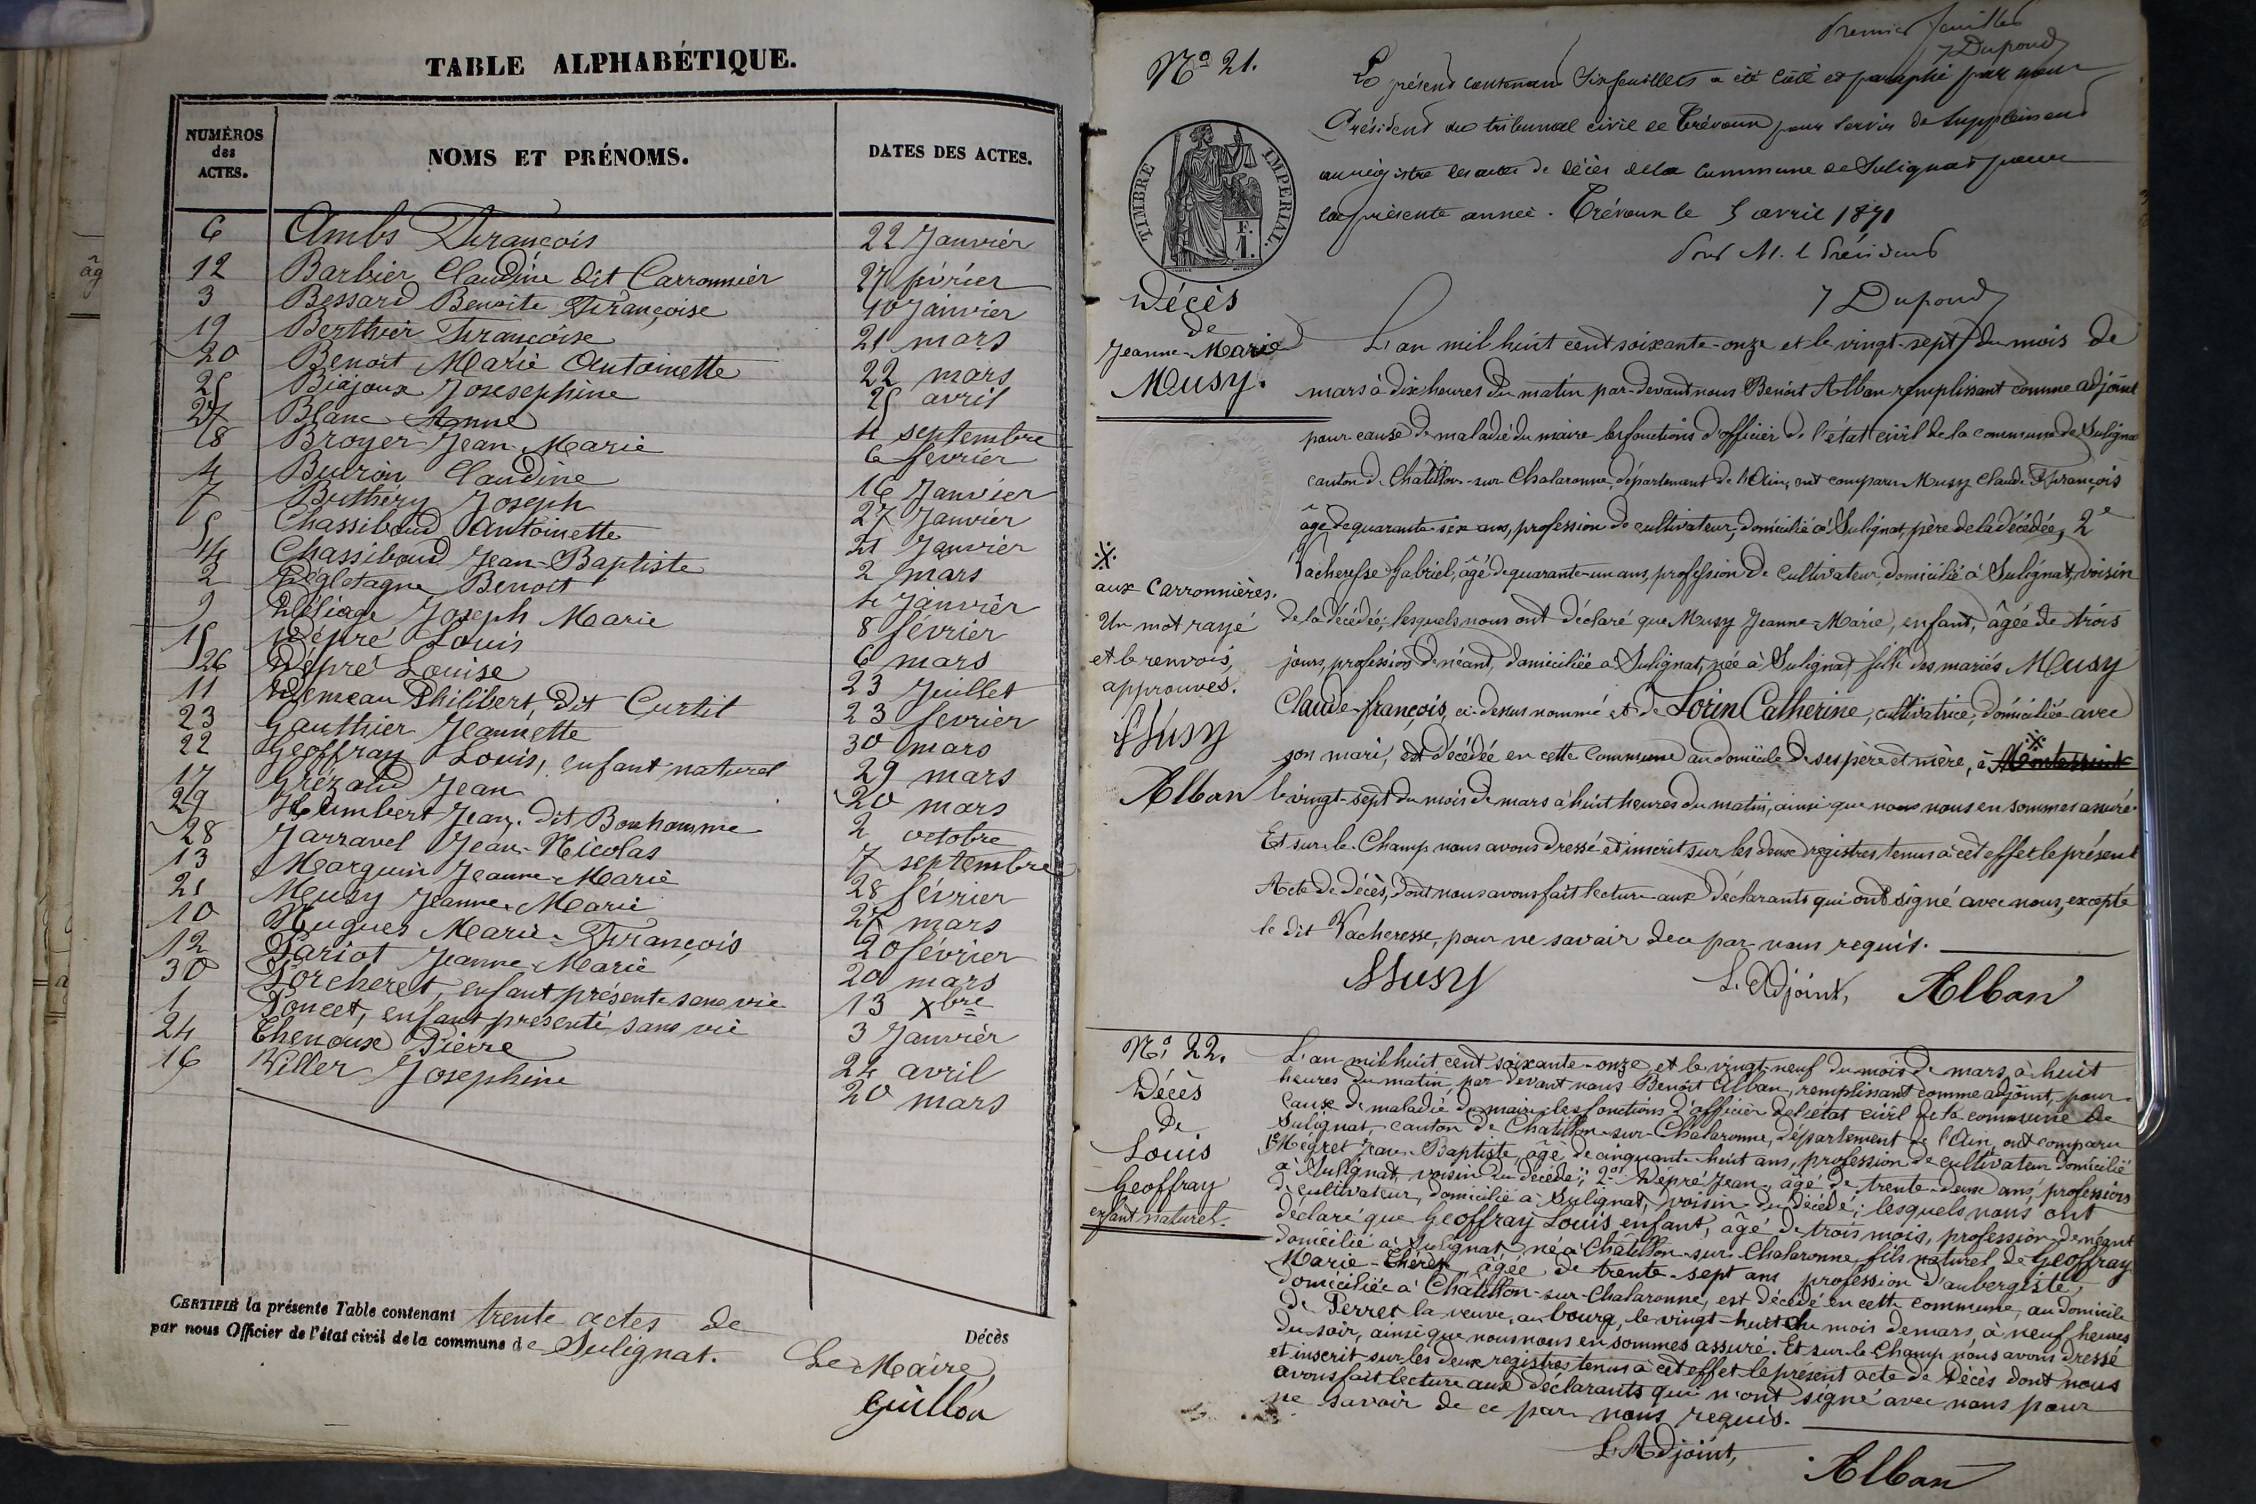 TABLE ALPHABÉTIQUE.
NUMÉROS des ACTES. NOMS ET PRÉNOMS. DATES DES ACTES.
6 Ambs François 22 Janvier
12 Barbier Claudine dit Carronnier 27 février
3 Bessard Benoite Françoise 10 Janvier
19 Berthier Françoise 21 mars
20 Benoit Marie Antoinette 22 mars
25 Biajoux Josesephine 25 avril
27 Blanc Anne 4 septembre
8 Broyer Jean-Marie 6 fevrier
4 Buiron Claudine 16 Janvier
7 Buthéry Joseph 27 Janvier
5 Chassiboud Antoinette 21 Janvier
14 Chassiboud Jean-Baptiste 2 mars
2 Benoit 4 Janvier
9 Déliage Joseph Marie 8 février
15 Dépré Louis 6 mars
26 Dépré Louise 23 Juillet
11 Philibert, dit Curtit 23 fevrier
23 Gauthier Jeannette 30 mars
22 Geoffray Louis, enfant naturel 29 mars
17 Grézaud Jean 20 mars
29 Humbert Jean, dit Bonhomme 2 octobre
28 Jarravel Jean-Nicolas 7 septembre
13 Marguin Jeanne-Marie 28 février
21 Musy Jeanne-Marie 27 mars
10 Nugues Marie-François 20 février
12 Pariot Jeanne-Marie 20 mars
30 Porcheret, enfant présenté sans vie 13 xbre
1 Poncet, enfant presenté sans vie 3 Janvier
24 Thenoux Pierre 24 avril
16 Willer Josephine 20 mars
CERTIFIÉ la présente Table contenant trente actes de Décès
par nous Officier de l'état civil de la commune de Sulignat.
Le Maire,
Guillon
Premier feuillet
Dupond
No 21.
Le présent contenant Six feuillets a été coté et paraphé par nous
Président du tribunal civil de Trévoux pour servir de supplément
au registre des actes de décès de la Commune de Sulignat pour
la présente année. Trévoux le 5 avril 1871
Pour M. le Président
Dupond
TIMBRE IMPÉRIAL.
Décès
de
Jeanne-Marie
Musy.
L'an mil huit cent soixante-onze et le vingt-sept du mois de
mars à dix heures du matin par-devant nous Benoit Alban remplissant comme adjoint
pour cause de maladie du maire les fonctions d'officier de l'état civil de la commune de Sulignat
canton de Chatillon-sur-Chalaronne, département de l'Ain, ont comparu Musy Claude François
âgé de quarante-six ans, profession de cultivateur, domicilié à Sulignat, père de la décédée, 2e
Vacheresse Gabriel, âgé de quarante-un ans, profession de cultivateur, domicilié à Sulignat, voisin
de la décédée; lesquels nous ont déclaré que Musy Jeanne-Marie, enfant, âgée de trois
jours, profession de néant, domiciliée à Sulignat, née à Sulignat fille des mariés Musy
Claude-françois, ci-dessus nommé et de Lorin Catherine, cultivatrice, domiciliée avec
son mari, est décédée en cette commune au domicile de ses père et mère, à ※
le vingt-sept du mois de mars à huit heures du matin, ainsi que nous nous en sommes assuré.
Et sur-le-Champ nous avons dressé et inscrit sur les deux registres tenus à cet effet le présent
Acte de décès, dont nous avons fait lecture aux déclarants qui ont signé avec nous, excepté
le dit Vacheresse, pour ne savoir de ce par nous requis.
※
aux Carronnières.
Un mot rayé
et le renvois,
approuvés.
Musy
Alban
Musy L'Adjoint, Alban
No. 22.
Décès
De
Louis
Geoffray
enfant naturel.
L'an mil huit cent soixante-onze et le vingt-neuf du mois de mars, à huit
heures du matin, par-devant nous Benoit Alban, remplissant comme adjoint, pour
cause de maladie du maire les fonctions d'officier de l'état civil de la commune de
Sulignat, canton de Chatillon-sur-Chalaronne, département de l'Ain, ont comparu
1e Mégret Jean-Baptiste, âgé de cinquante-huit ans, profession de cultivateur domicilié
à Sulignat, voisin du décédé; 2e Dépré Jean, âgé de trente-deux ans, profession
de cultivateur, domicilié à Sulignat, voisin du décédé; lesquels nous ont
déclaré que Geoffray Louis enfant, âgé de trois mois, profession de néant
domicilié à Sulignat né à Châtillon-sur-Chalaronne fils naturel de Geoffray
Marie-Thérèse, âgée de trente-sept ans, profession d'aubergiste,
domiciliée à Châtillon-sur-Chalaronne, est décédé en cette commune, au domicile
de Perret la veuve, au bourg, le vingt-huit du mois de mars, à neuf heures
du soir, ainsi que nous nous en sommes assuré. Et sur-le-Champ nous avons dressé
et inscrit sur les deux registres tenus à cet effet le présent acte de Décès dont nous
avons fait lecture aux déclarants qui n'ont signé avec nous pour
ne savoir de ce par nous requis.
L'Adjoint,
Alban